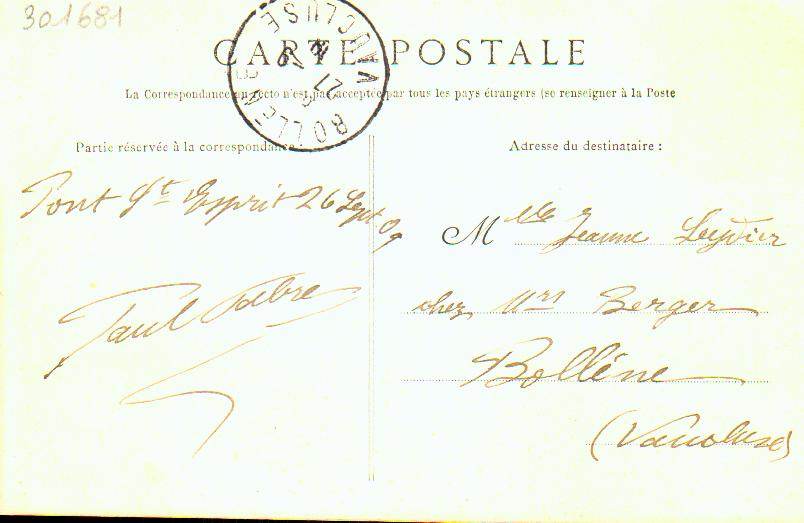 301681
CARTE POSTALE
La Correspondance au recto n'est pas acceptée par tous les pays étrangers (se renseigner à la Poste
BOLLENE
VAUCLUSE
27
9
09
Partie réservée à la correspondance.
Adresse du destinataire :
Pont St Esprit 26 Sept 09
Paul Fabre
M lle Jeanne
chez Mrs Berger
Bollène
(Vaucluse)